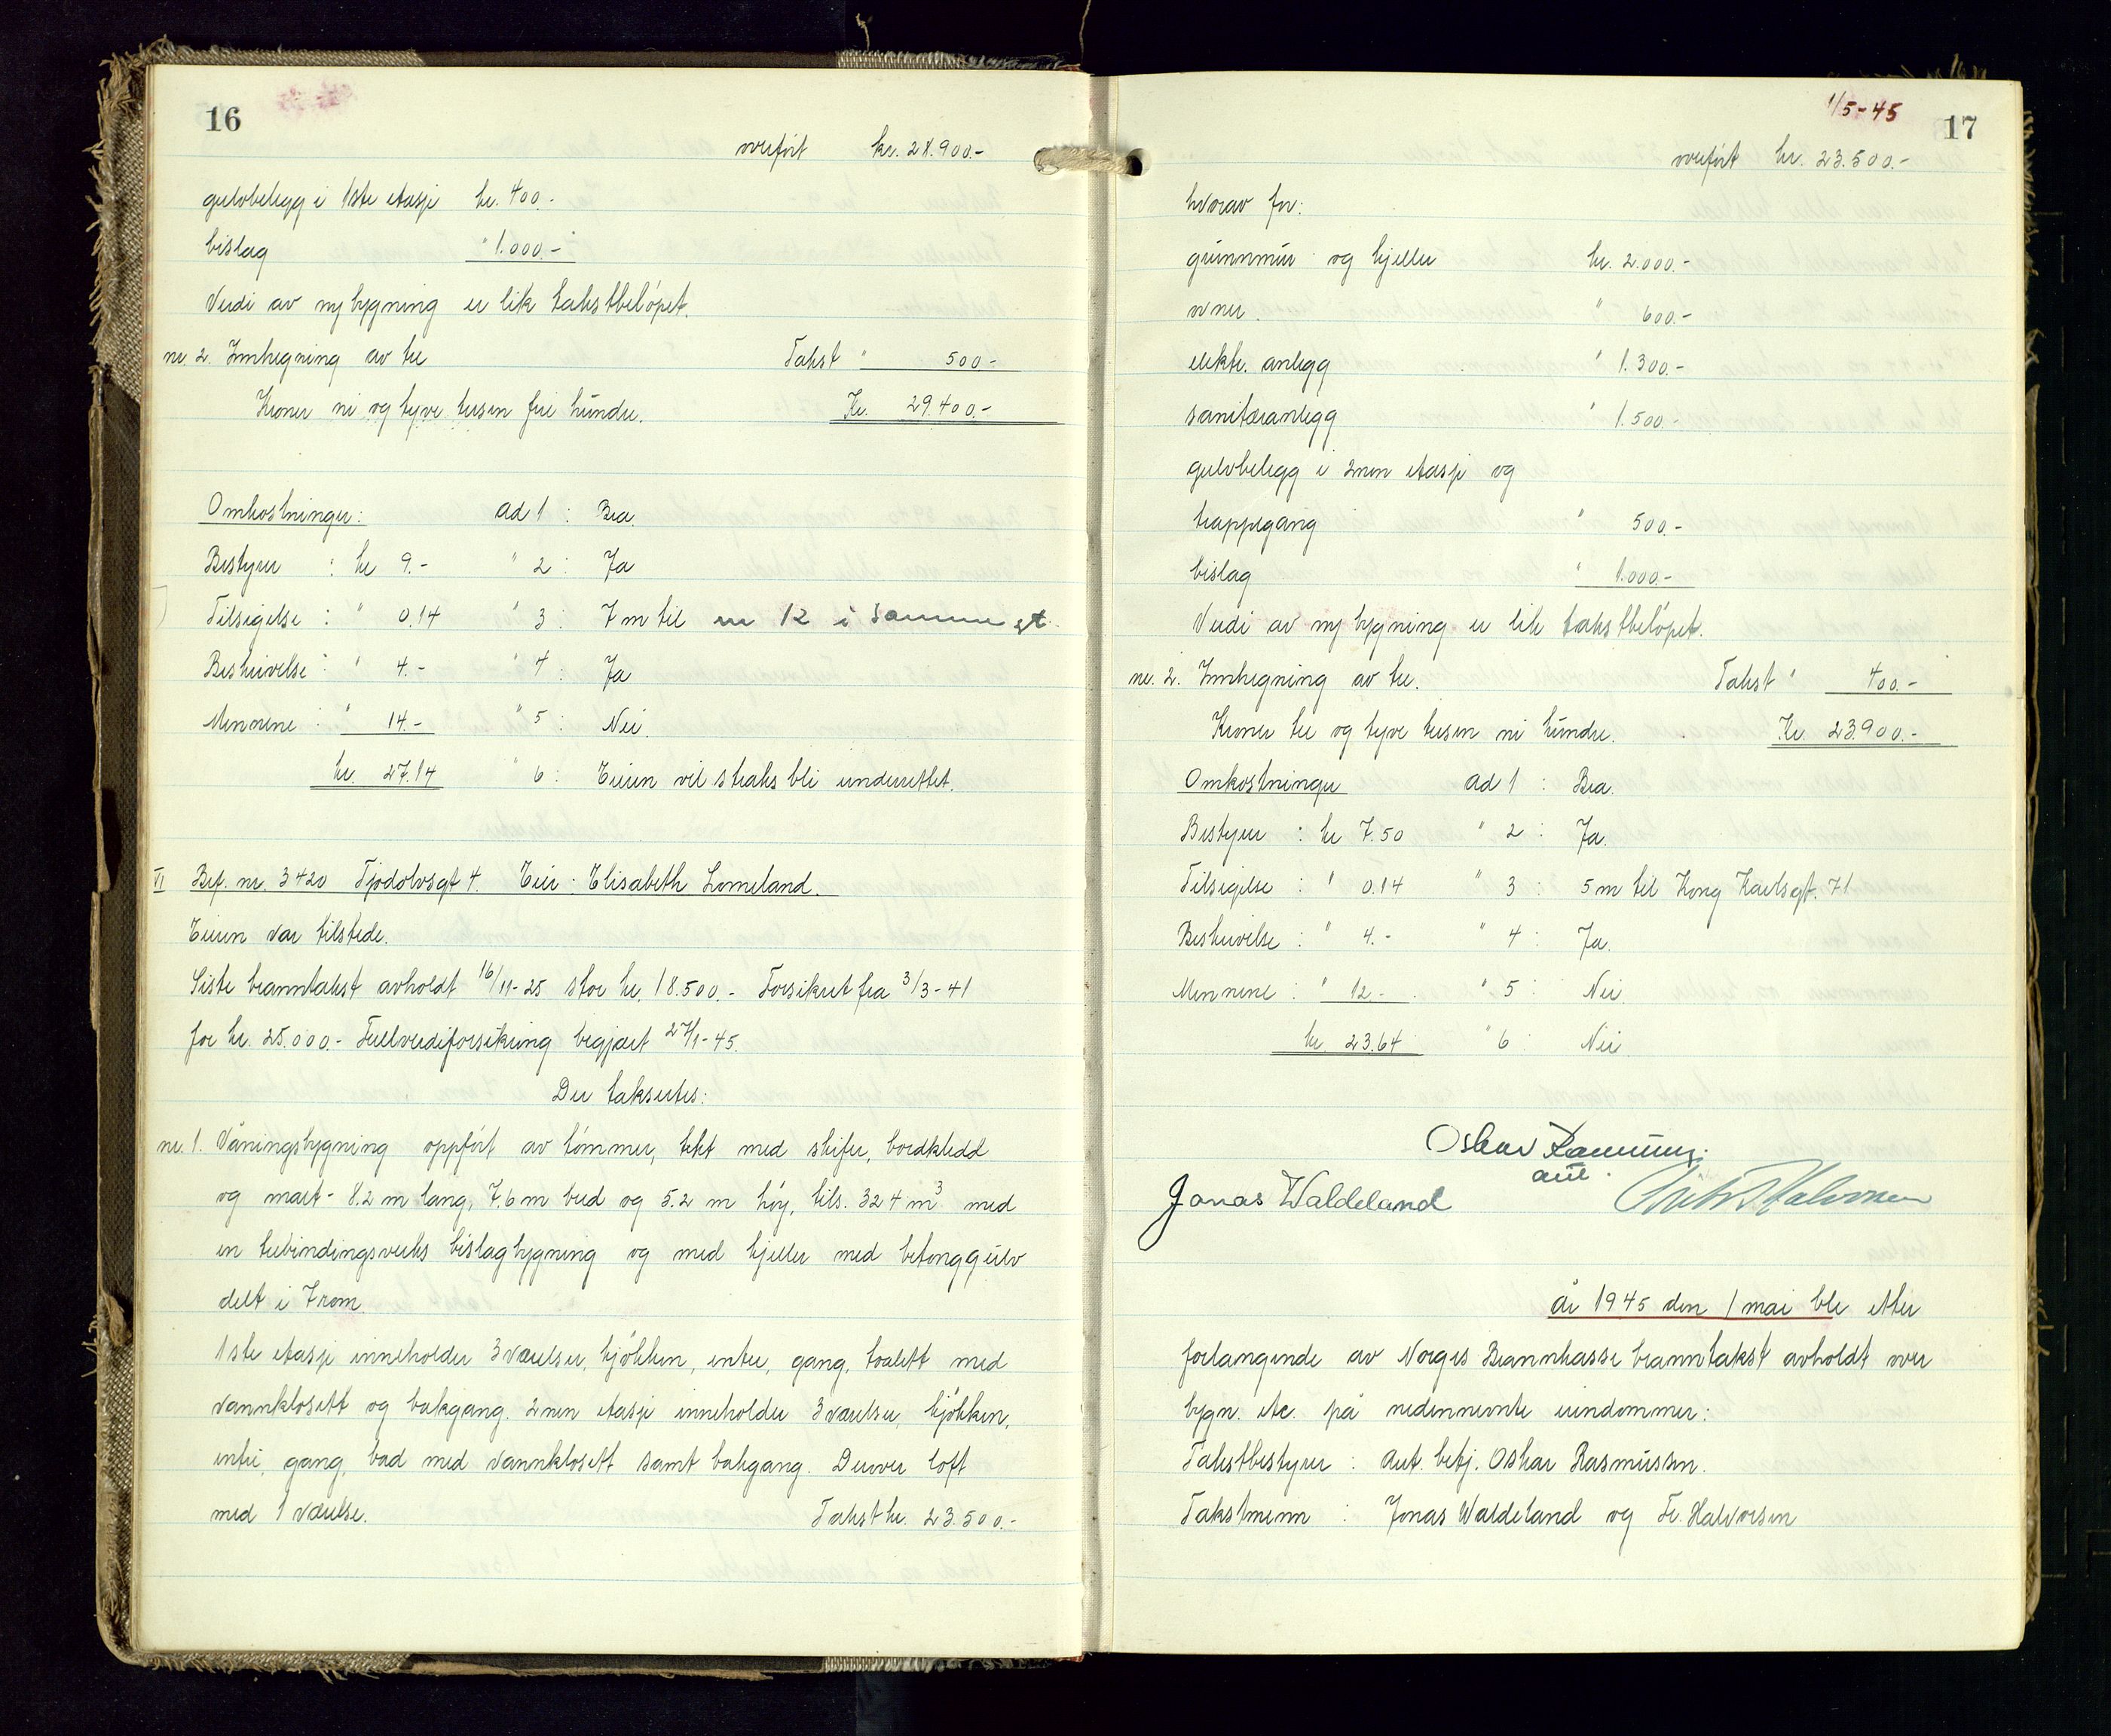 16
overført kr. 28.900.-
gulvbelegg i 1ste etasje kr. 400.-
bislag " 1.000.-
Verdi av ny bygning er lik takstbeløpet.
nr. 2. Innhegning av tre Takst " 500.-
Kroner ni og tyve tusen fire hundre. Kr. 29.400.-
Omkostninger: ad 1 : Bra.
Bestyrer : kr 9.- " 2 : Ja
Tilsigelse : " 0.14 " 3 : 7 m til nr 12 i samme gt.
Beskrivelse : " 4.- " 4 : Ja
Mennene : " 14.- " 5 : Nei.
kr. 27.14 " 6 : Eieren vil straks bli underrettet.
VI Bef. nr. 3420 Tjodolvsgt 4. Eier: Elisabeth Lomeland.
Eieren var tilstede.
Siste branntakst avholdt 16/11-25 stor kr. 18.500.- Forsikret fra 3/3-41
for kr. 25.000.- Fullverdiforsikring begjært 27/1-45.
Der takseres:
nr. 1. Våningsbygning oppført av tømmer, tekt med skifer, bordkledd
og malt - 8.2 m lang, 7.6 m bred og 5.2 m høy, tils. 324 m3 med
en trebindingsverks bislagbygning og med kjeller med betonggulv
delt i 7 rom.
1ste etasje inneholder 3 værelser, kjøkken, entre, gang, toalett med
vannklosett og bakgang. 2nen etasje inneholder 3 værelser, kjøkken,
entre, gang, bad med vannklosett samt bakgang. Derover loft
med 1 værelse. Takst kr. 23.500.-
1/5-45
17
overført kr. 23.500.-
hvorav for:
grunnmur og kjeller kr. 2.000.-
ovner. " 600.-
elektr. anlegg " 1.300.-
sanitæranlegg " 1.500.-
gulvbelegg i 2nen etasje og
trappegang " 500.-
bislag " 1.000.-
Verdi av ny bygning er lik takstbeløpet.
nr. 2. Innhegning av tre. Takst " 400.-
Kroner tre og tyve tusen ni hundre. Kr 23.900.-
Omkostninger ad 1 : Bra.
Bestyrer : kr 7.50 " 2 : Ja.
Tilsigelse : " 0.14 " 3 : 5 m til Kong Karlsgt. 71
Beskrivelse : " 4.- " 4 : Ja.
Mennene : " 12.- " 5 : Nei
kr. 23.64 " 6 : Nei
Oskar Rasmussen.
aut.
Jonas Waldeland Halvorsen
År 1945 den 1 mai ble etter
forlangende av Norges Brannkasse branntakst avholdt over
bygn. etc. på nedennevnte eiendommer:
Takstbestyrer : Aut. betj. Oskar Rasmussen.
Takstmenn : Jonas Waldeland og Fr. Halvorsen